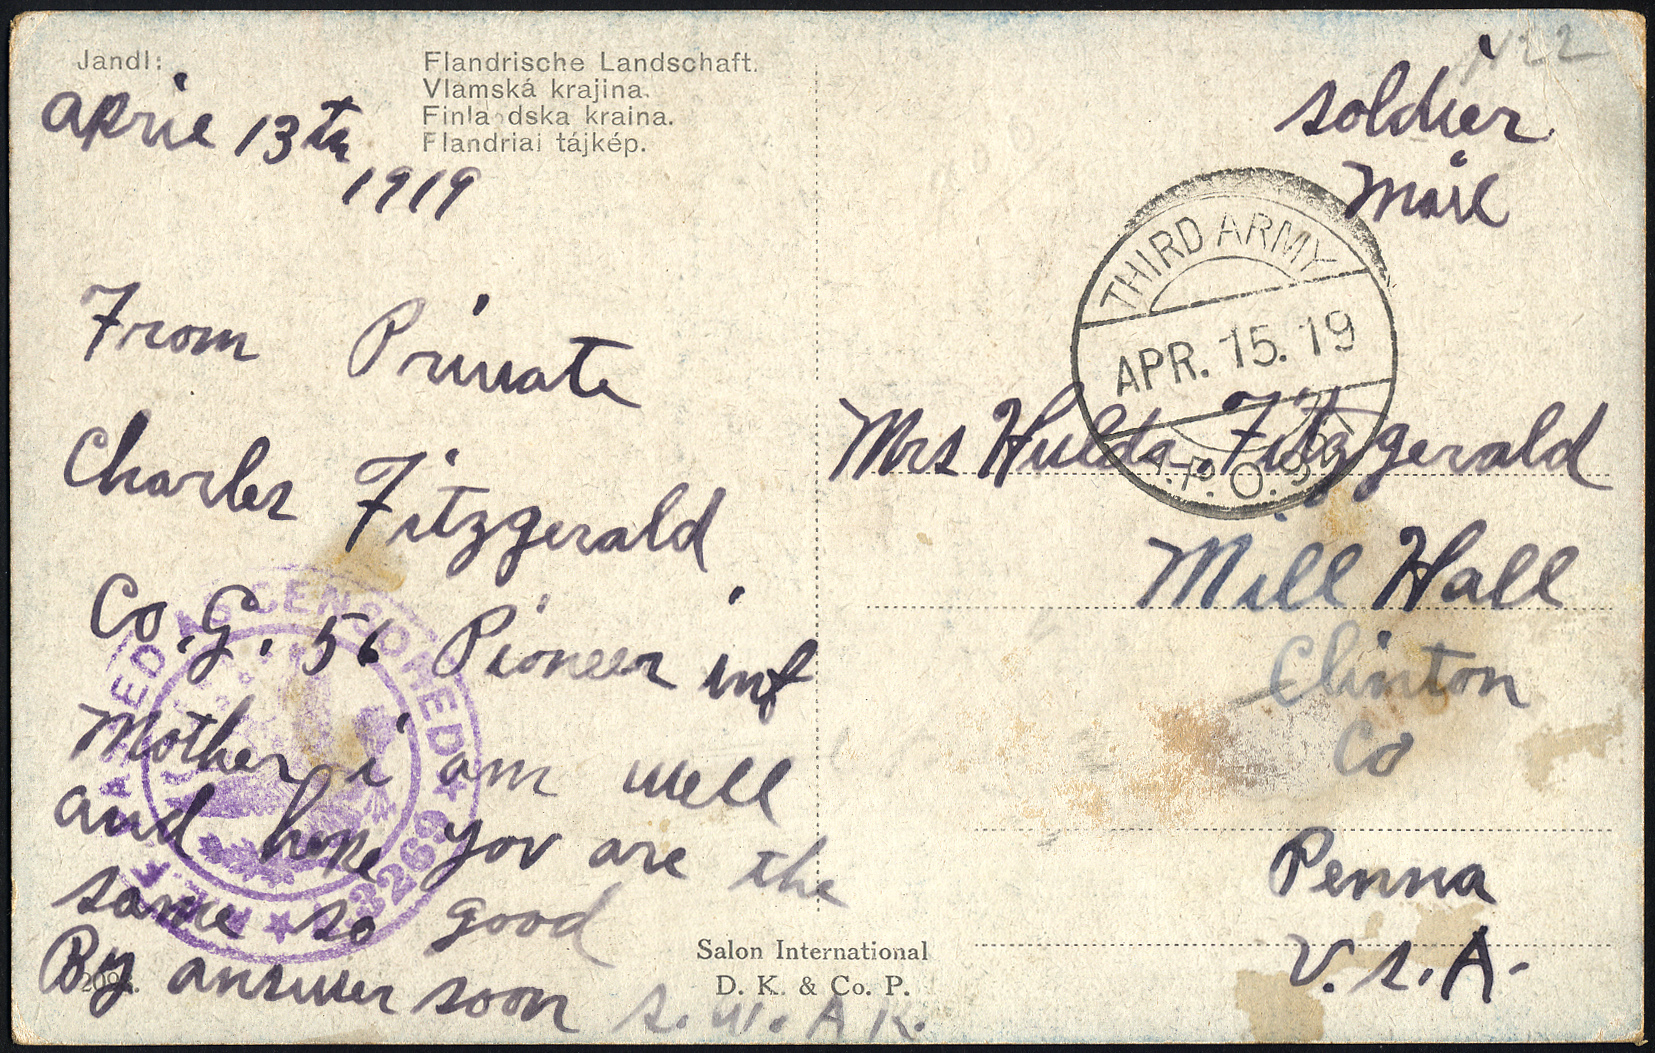 Jandl:
Flandrische Landschaft.
Vlámská krajina.
Finla dska kraina.
Flandriai tájkép.
April 13th
1919
From Private
Charles Fitzgerald
Co. G. 56 Pioneer inf
Mother i am well
and hope you are the
same so good
By answer soon
S. W. A K.
2098.
CENSORED
3269
Salon International
D. K. & Co. P.
N22
soldier
Mail
THIRD ARMY
APR. 15. 19
A.P.O.
Mrs Hulda Fitzgerald
Mill Hall
Clinton
Co
Penna
U. S. A.